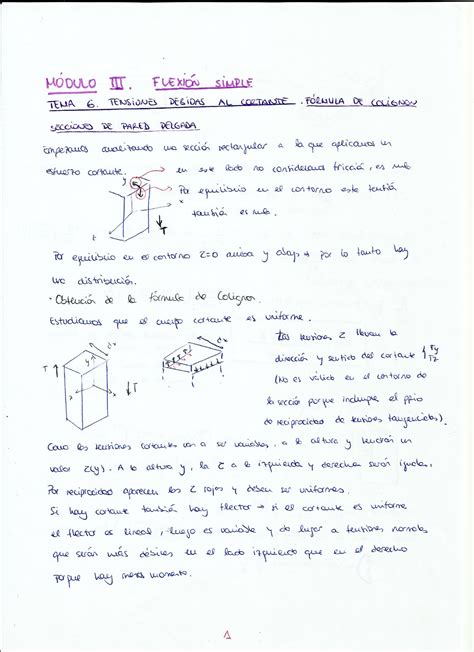 MÓDULO III. FLEXIÓN SIMPLE
TEMA 6. TENSIONES DEBIDAS AL CORTANTE. FÓRMULA DE COLIGNON
SECCIONES DE PARED DELGADA
Empezamos analizando una sección rectangular a la que aplicamos un
esfuerzo cortante.
en este lado no consideramos fricción, es nulo
Por equilibrio en el contorno esta tensión
también es nula.
y
x
z
T
Por equilibrio en ese contorno τ=0 arriba y abajo y por lo tanto hay
una distribución.
· Obtención de la fórmula de Colignon.
Estudiamos que el cuerpo cortante es uniforme.
dx
y
T
x
↓T
dx
Las tensiones τ llevan la
dirección y sentido del cortante { Ty Tz
(No es válido en el contorno de
la sección porque incumple el ppio
de reciprocidad de tensiones tangenciales).
Como las tensiones cortantes van a ser variables, a la altura y tendrán un
valor τ(y). A la altura y, la τ a la izquierda y derecha serán iguales.
Por reciprocidad aparecen las τ rojas y deben ser uniformes.
Si hay cortante también hay flector → si el cortante es uniforme
el flector es lineal, luego es variable y da lugar a tensiones normales
que serán más débiles en el lado izquierdo que en el derecho
porque hay menos momento.
1